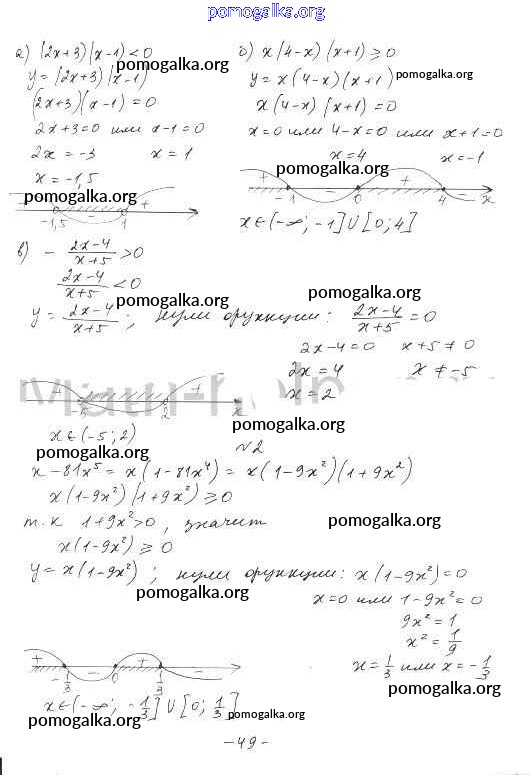 pomogalka.org
а) (2x+3)(x-1)<0
y=(2x+3)(x-1)
pomogalka.org
(2x+3)(x-1)=0
2x+3=0 или x-1=0
2x=-3 x=1
x=-1,5
pomogalka.org
+ - +
-1,5 1
б) x(4-x)(x+1)≥0
y=x(4-x)(x+1)
pomogalka.org
x(4-x)(x+1)=0
x=0 или 4-x=0 или x+1=0
x=4 x=-1
pomogalka.org
+ - + -
-1 0 4 x
x∈(-∞; -1]∪[0; 4]
в) - (2x-4)/(x+5) >0
pomogalka.org
(2x-4)/(x+5) <0
pomogalka.org pomogalka.org
y= (2x-4)/(x+5); нули функции: (2x-4)/(x+5) =0
2x-4=0 x+5≠0
2x=4 x≠-5
pomogalka.org
x=2
+ - +
-5 2 x
x∈(-5; 2)
pomogalka.org
№2
pomogalka.org
x-81x⁵= x(1-81x⁴)= x(1-9x²)(1+9x²)
x(1-9x²)(1+9x²)≥0
т.к 1+9x²>0, значит
pomogalka.org
x(1-9x²)≥0
y=x(1-9x²); нули функции: x(1-9x²)=0
pomogalka.org
x=0 или 1-9x²=0
9x²=1
x²=1/9
x=1/3 или x=-1/3
pomogalka.org
+ - + -
-1/3 0 1/3
x∈(-∞; -1/3]∪[0; 1/3]
pomogalka.org pomogalka.org
-49-